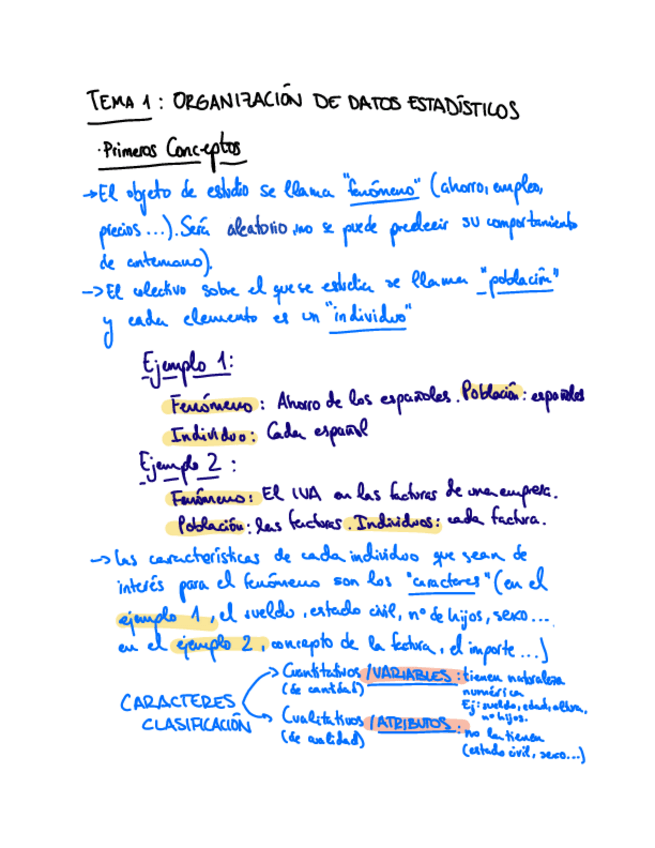 TEMA 1 : ORGANIZACIÓN DE DATOS ESTADÍSTICOS
· Primeros Conceptos
→ El objeto de estudio se llama "fenómeno" (ahorro, empleo,
precios ...). Será aleatorio, no se puede predecir su comportamiento
de antemano).
-> El colectivo sobre el que se estudia se llama "población"
y cada elemento es un "individuo"
Ejemplo 1:
Fenómeno: Ahorro de los españoles. Población: españoles
Individuo: Cada español
Ejemplo 2 :
Fenómeno: El IVA en las facturas de una empresa.
Población: las facturas. Individuos: cada factura.
→ Las características de cada individuo que sean de
interés para el fenómeno son los "caracteres" (en el
ejemplo 1, el sueldo, estado civil, nº de hijos, sexo...
en el ejemplo 2, concepto de la factura, el importe ...)
CARACTERES CLASIFICACIÓN
→ Cuantitativos / VARIABLES : tienen naturaleza
(de cantidad)
numérica
Ej: sueldo, edad, altura,
nº hijos.
→ Cualitativos / ATRIBUTOS : no la tienen
(de cualidad)
(estado civil, sexo...)